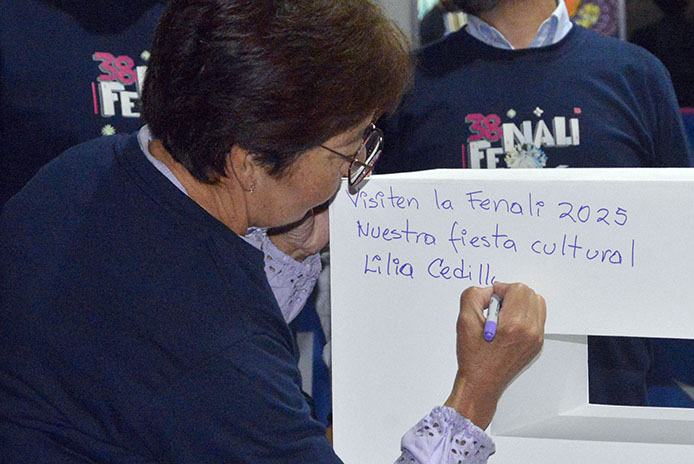 38
FE
38
FENALI
FE
Visiten la Fenali 2025
Nuestra fiesta cultural
Lilia Cedill